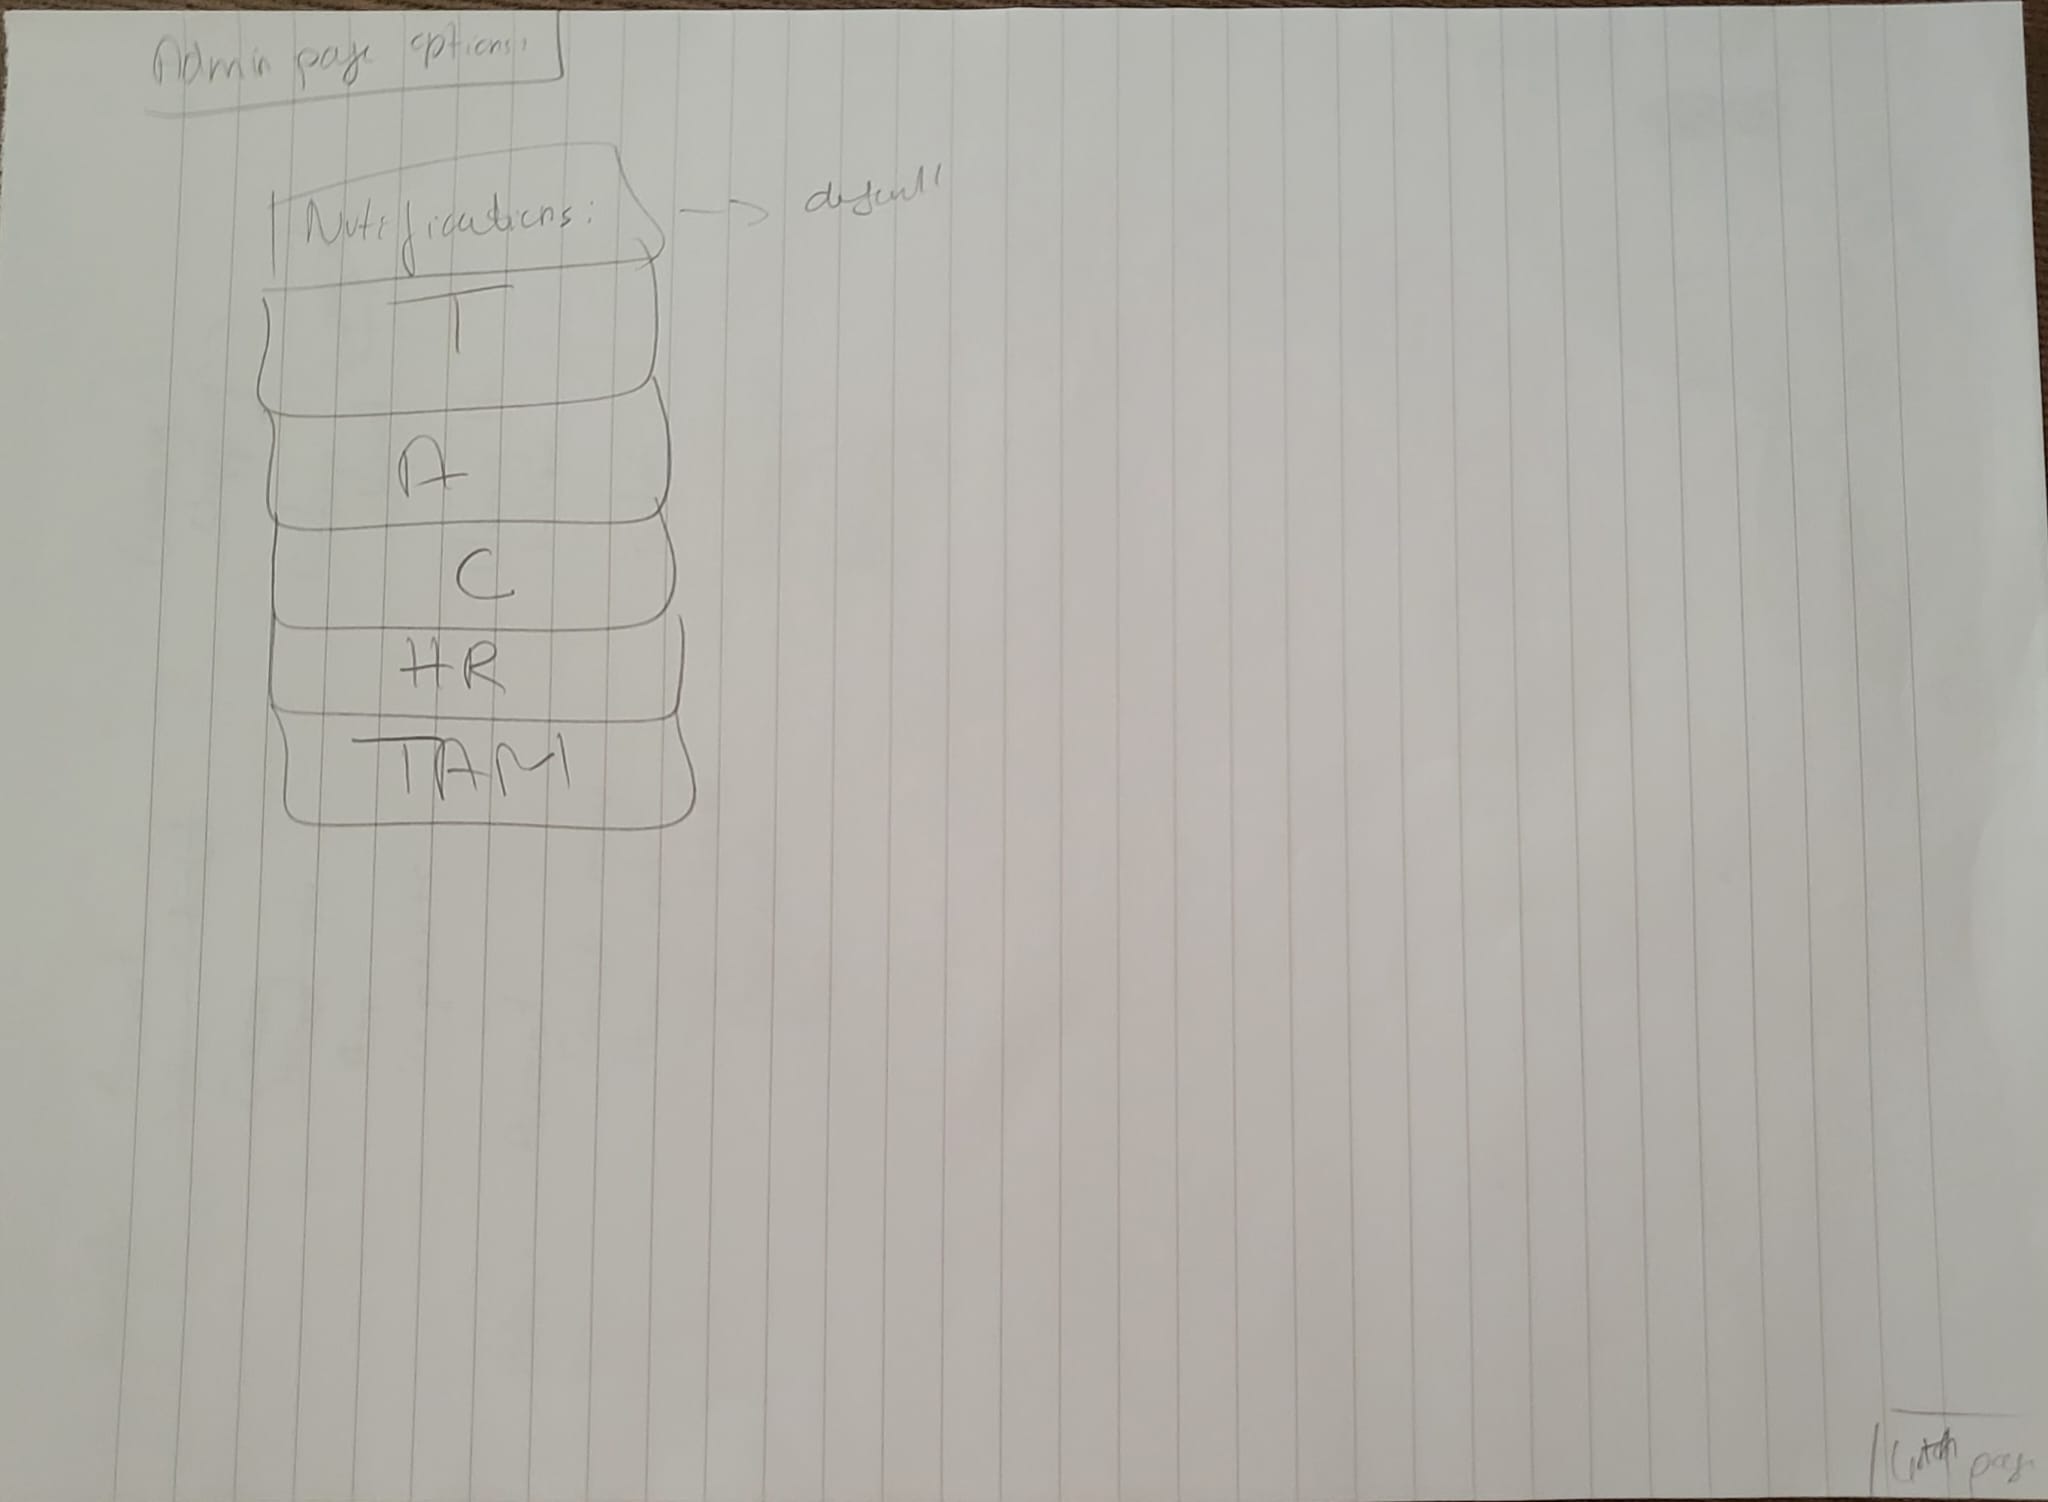 Admin page options:
Notifications: -> default
T
A
C
HR
TAM
page